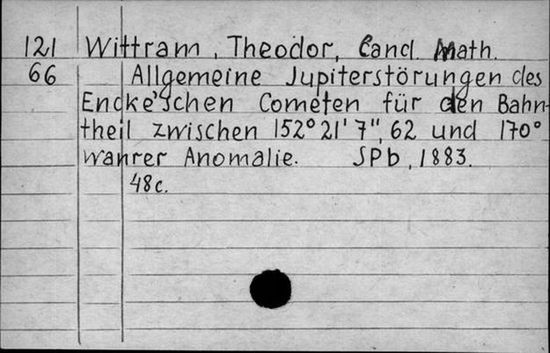 121 Wittram, Theodor, Cand. Math.
66 Allgemeine Jupiterstörungen des
Encke'schen Cometen für den Bahn-
theil zwischen 152° 21' 7", 62 und 170°
wahrer Anomalie. SPb, 1883.
48c.